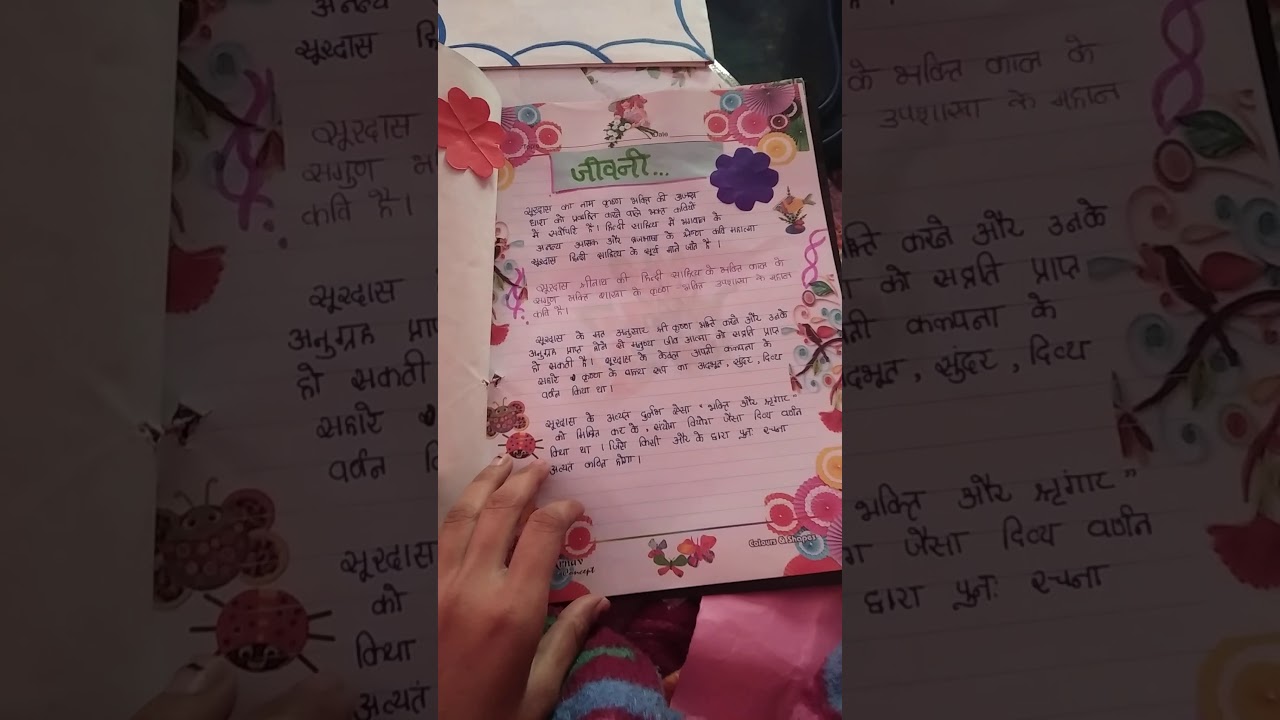 Date
जीवनी...
सूरदास का नाम कृष्ण भक्ति की अजस्र
धारा को प्रवाहित करने वाले भक्त कवियों
में सर्वोपरि है। हिन्दी साहित्य में भगवान के
अनन्य उपासक और ब्रजभाषा के श्रेष्ण कवि महात्मा
सूरदास हिन्दी साहित्य के सूर्य माने जाते है ।
सूरदास की हिन्दी साहित्य के भक्ति काल के
सगुण भक्ति शाखा के कृष्ण भक्ति उपशाखा के महान
कवि है।
सूरदास के मत अनुसार श्री कृष्ण भक्ति करने और उनके
अनुग्रह प्राप्त होने से मनुष्य जीव आत्मा को सद्गति प्राप्त
हो सकती है। सूरदास के केवल अपनी कल्पना के
सहारे कृष्ण के बाल्य रूप का अदभूत, सुंदर, दिव्य
वर्वन किया था।
सूरदास के अत्यंत दुर्लभ ऐसा "भक्ति और श्रृंगार"
को मिश्रित कर के, संयोग वियोग जैसा दिव्य वर्णन
किया था । जिसे किसी और के द्वारा पुनः रचना
अत्यंत कठिन होगा।
Colours & Shapes
Concept